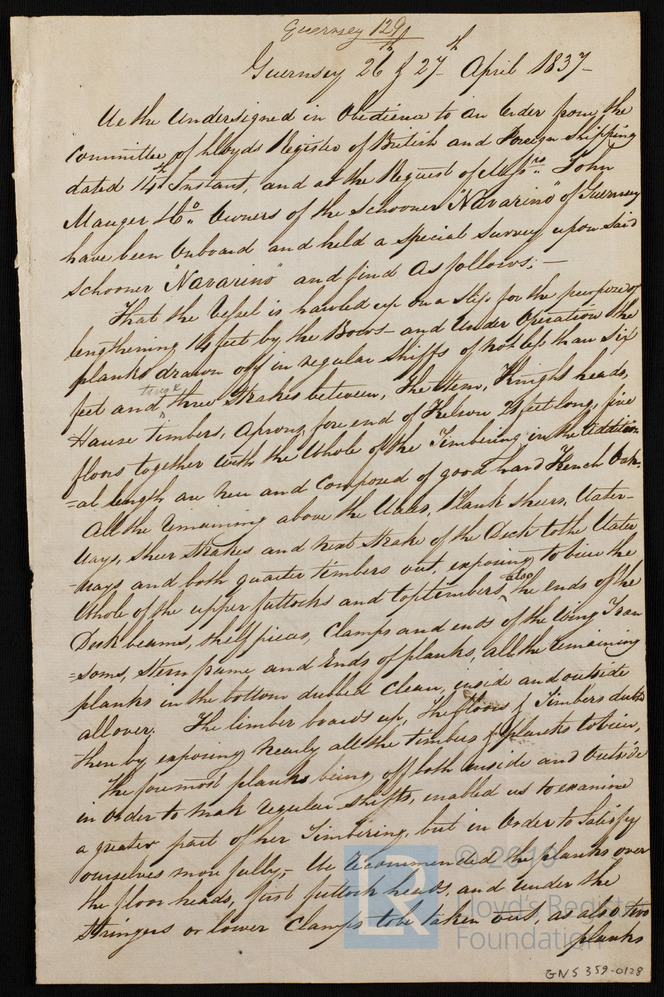 Guernsey 129
Guernsey 26th & 27th April 1837-
We the Undersigned in Obedience to an Order from the
Committee of Lloyds Register of British and Foreign Shipping
dated 14th Instant, and at the Request of Messrs. John
Mauger & Co. Owners of the Schooner "Navarino" of Guernsey
have been Onboard and held a special survey upon said
Schooner "Navarino" and find As follows; -
That the Vessel is hauled up on a Slip for the purpose of
lengthening 14 feet by the Bows - and Under Operation the
planks drawn off in regular Shifts of not less than Six
feet and three Strakes between, The Stem, Knight heads,
Hause Timbers, Aprong, fore end of Kelson 21 feet long, five
floors together with the Whole of the Timbering in the Addition
=al length are New and Composed of good hard French Oak.
All the remaining above the Wales, Plank sheers, Water-
Ways, Sheer Strakes and next Strake of the Deck to the Water
-ways and both quarter timbers out, exposing to view the
Whole of the upper futtocks and toptimbers, also the ends of the
Deck beams, shelf pieces, Clamps and ends of the Wing Tran
=soms, Stern frame and Ends of planks, all the remaining
planks in the bottom dubbed Clean, inside and outside
all over. The limber boards up, The floors & Timbers dubbed
then by exposing Nearly all the timbers & planks to view,
The foremost planks being off both inside and Outside
in Order to make regular Shifts, enabled us to examine
a greater part of her Timbering, but in Order to Satisfy
ourselves more fully,- We recommended the planks over
the floor heads, first futtock heads, and under the
Stringers or lower Clamps to be taken out, as also two
planks
© 2019
LR
Lloyd's Register
Foundation
GNS 359-0128